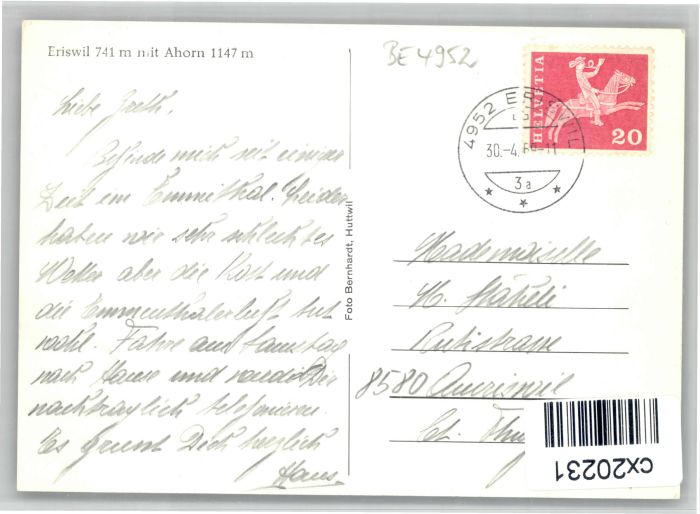 Eriswil 741 m mit Ahorn 1147 m
BE 4952
Liebe
Befinde mich seit einiger
Zeit im Emmenthal. Leider
haben wir sehr schlechtes
Wetter aber die Kost und
die Emmenthalerluft tut
wohl. Fahre am Samstag
nach Hause und werde Dir
nachträglich telefonieren.
Es grüsst Dich herzlich
Hans.
Foto Bernhardt, Huttwil
HELVETIA
20
4952 ERISWIL
30.-4.6 -11
3a
Mademoiselle
M. Stäheli
Rütistrasse
8580 Amriswil
Ct. Thu
cx20231